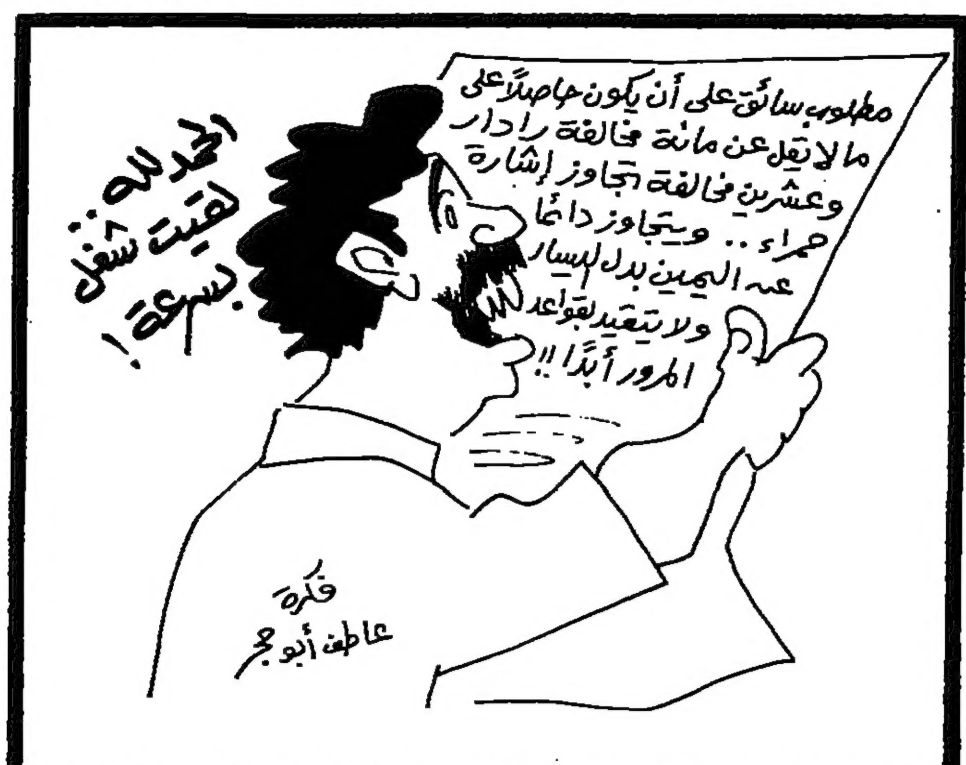 مطلوب سائق على أن يكون حاصلًا على
ما لا يقل عن مائة مخالفة رادار
وعشرين مخالفة تجاوز إشارة
حمراء .. ويتجاوز دائمًا
عن اليمين بدل اليسار
ولا يتقيد بقواعد
المرور أبدًا!!
الحمد لله ..
لقيت شغل
بسرعة!
فكرة
عاطف أبو حجر